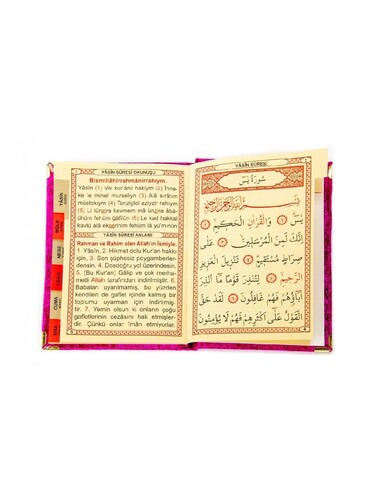 YÂSÎN SÛRESİ OKUNUŞU
Bismillâhirrahmânirrahıym.
Yâsîn (1) Vel kur'âni hakiym (2) İnne-
ke le minel murseliyn (3) Alâ sırâtım
mustekıym (4) Tenziylel aziyzir rahıym
(5) Li tünzira kavmem mâ ünzira âbâ-
ühüm fehüm ğâfilûn (6) Le kad hakkal
kavlü alâ ekserihim fehüm lâ yü'minûn
YÂSÎN SÛRESİ ANLAMI
Rahman ve Rahîm olan Allah'ın İsmiyle.
1. Yâsîn, 2. Hikmet dolu Kur'an hakkı
için, 3. Sen şüphesiz peygamberler-
densin. 4. Dosdoğru yol üzerindesin.
5. (Bu Kur'an) Gâlip ve çok merhamet-
li Allah tarafından indirilmiştir. 6.
Babaları uyarılmamış, bu yüzden
kendileri de gaflet içinde kalmış bir
toplumu uyarman için indirilmiş-
tir. 7. Yemin olsun ki onların çoğu
gafletlerinin cezasını hak etmişler-
dir. Çünkü onlar îman etmiyorlar.
YÂSÎN
MÜLK
NEBE
CUMA
YÂSÎN SÛRESİ
سُورَةُ يٰسٓ
بِسْمِ اللّٰهِ الرَّحْمٰنِ الرَّحِيمِ
يٰسٓ ۝١ وَالْقُرْاٰنِ الْحَكِيمِ ۝٢
اِنَّكَ لَمِنَ الْمُرْسَلِينَ ۝٣ عَلٰى
صِرَاطٍ مُسْتَقِيمٍ ۝٤ تَنْزِيلَ الْعَزِيزِ
الرَّحِيمِ ۝٥ لِتُنْذِرَ قَوْمًا مَٓا اُنْذِرَ
اٰبَٓاؤُهُمْ فَهُمْ غَافِلُونَ ۝٦ لَقَدْ حَقَّ
الْقَوْلُ عَلٰٓى اَكْثَرِهِمْ فَهُمْ لَا يُؤْمِنُونَ